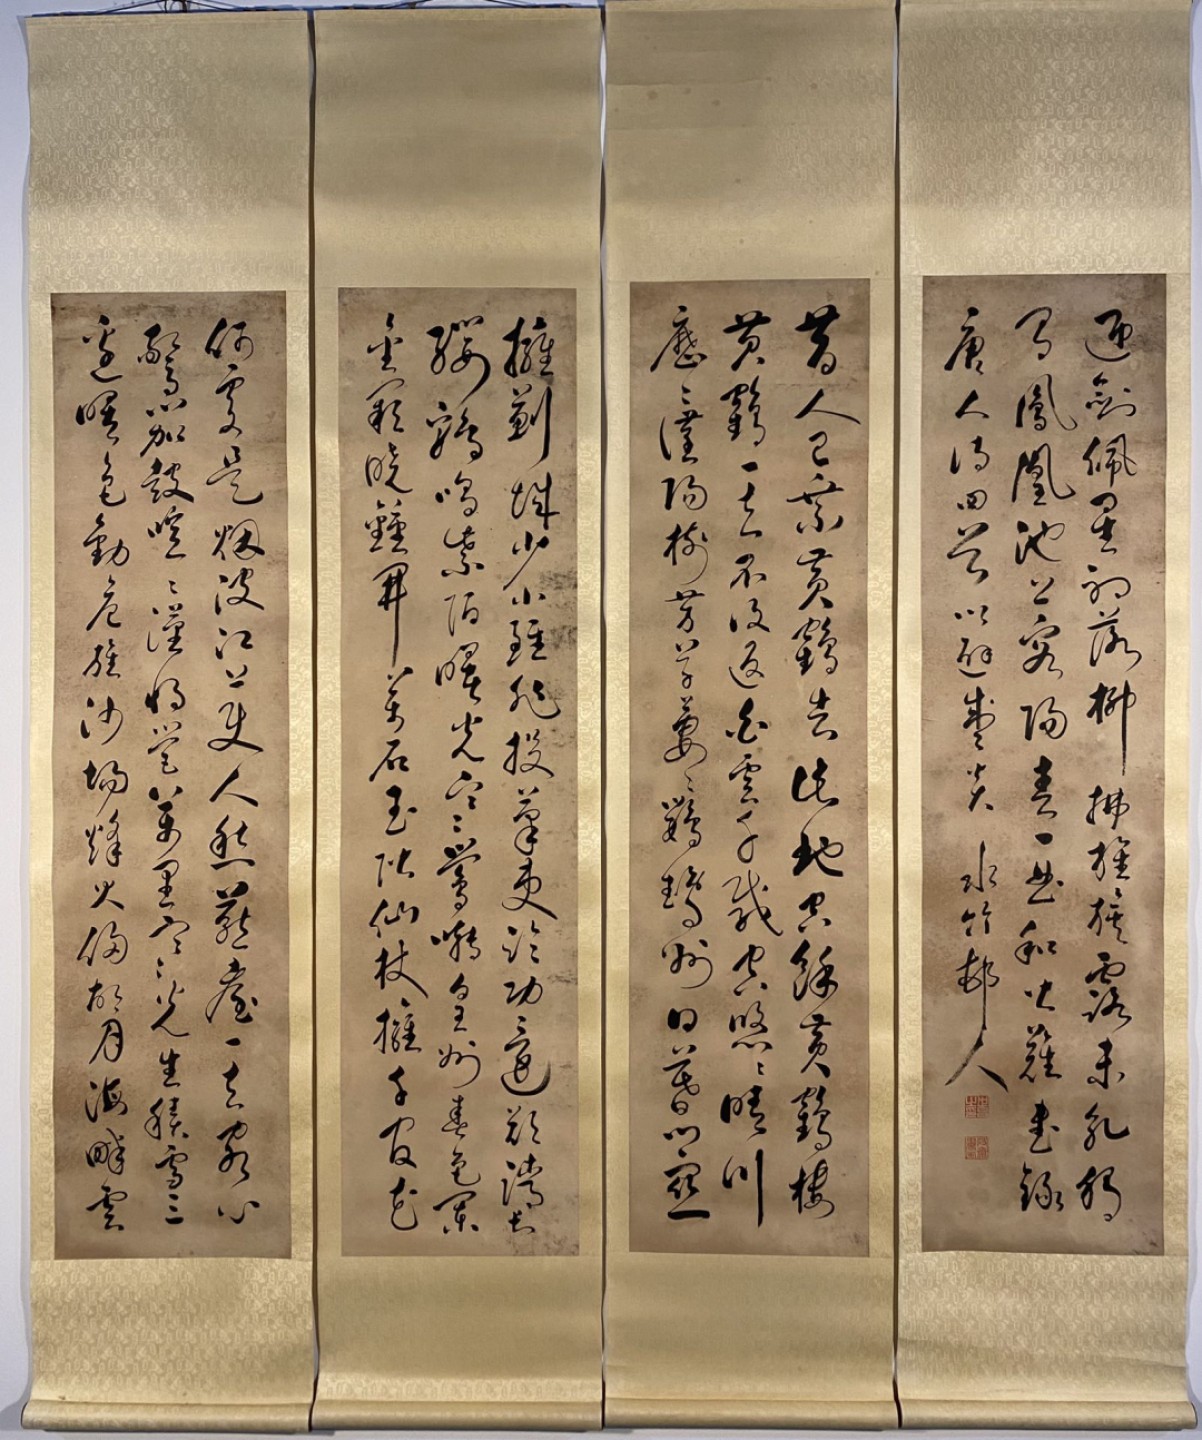 迎劍佩星初落柳拂旌旗露未乾獨
有鳳凰池上客陽春一曲和皆難書錄
唐人詩四首以避炎
水竹邨人
昔人已乘黃鶴去此地空餘黃鶴樓
黃鶴一去不復返白雲千載空悠悠晴川
歷歷漢陽樹芳草萋萋鸚鵡洲日暮鄉關
擁薊城少小雖非投筆吏論功還欲請長
纓雞鳴紫陌曙光寒鶯囀皇州春色闌
金闕曉鐘開萬戶玉階仙仗擁千官花
何處是煙波江上使人愁燕臺一去客心
驚笳鼓喧喧漢將營萬里寒光生積雪三
邊曙色動危旌沙場烽火侵胡月海畔雲